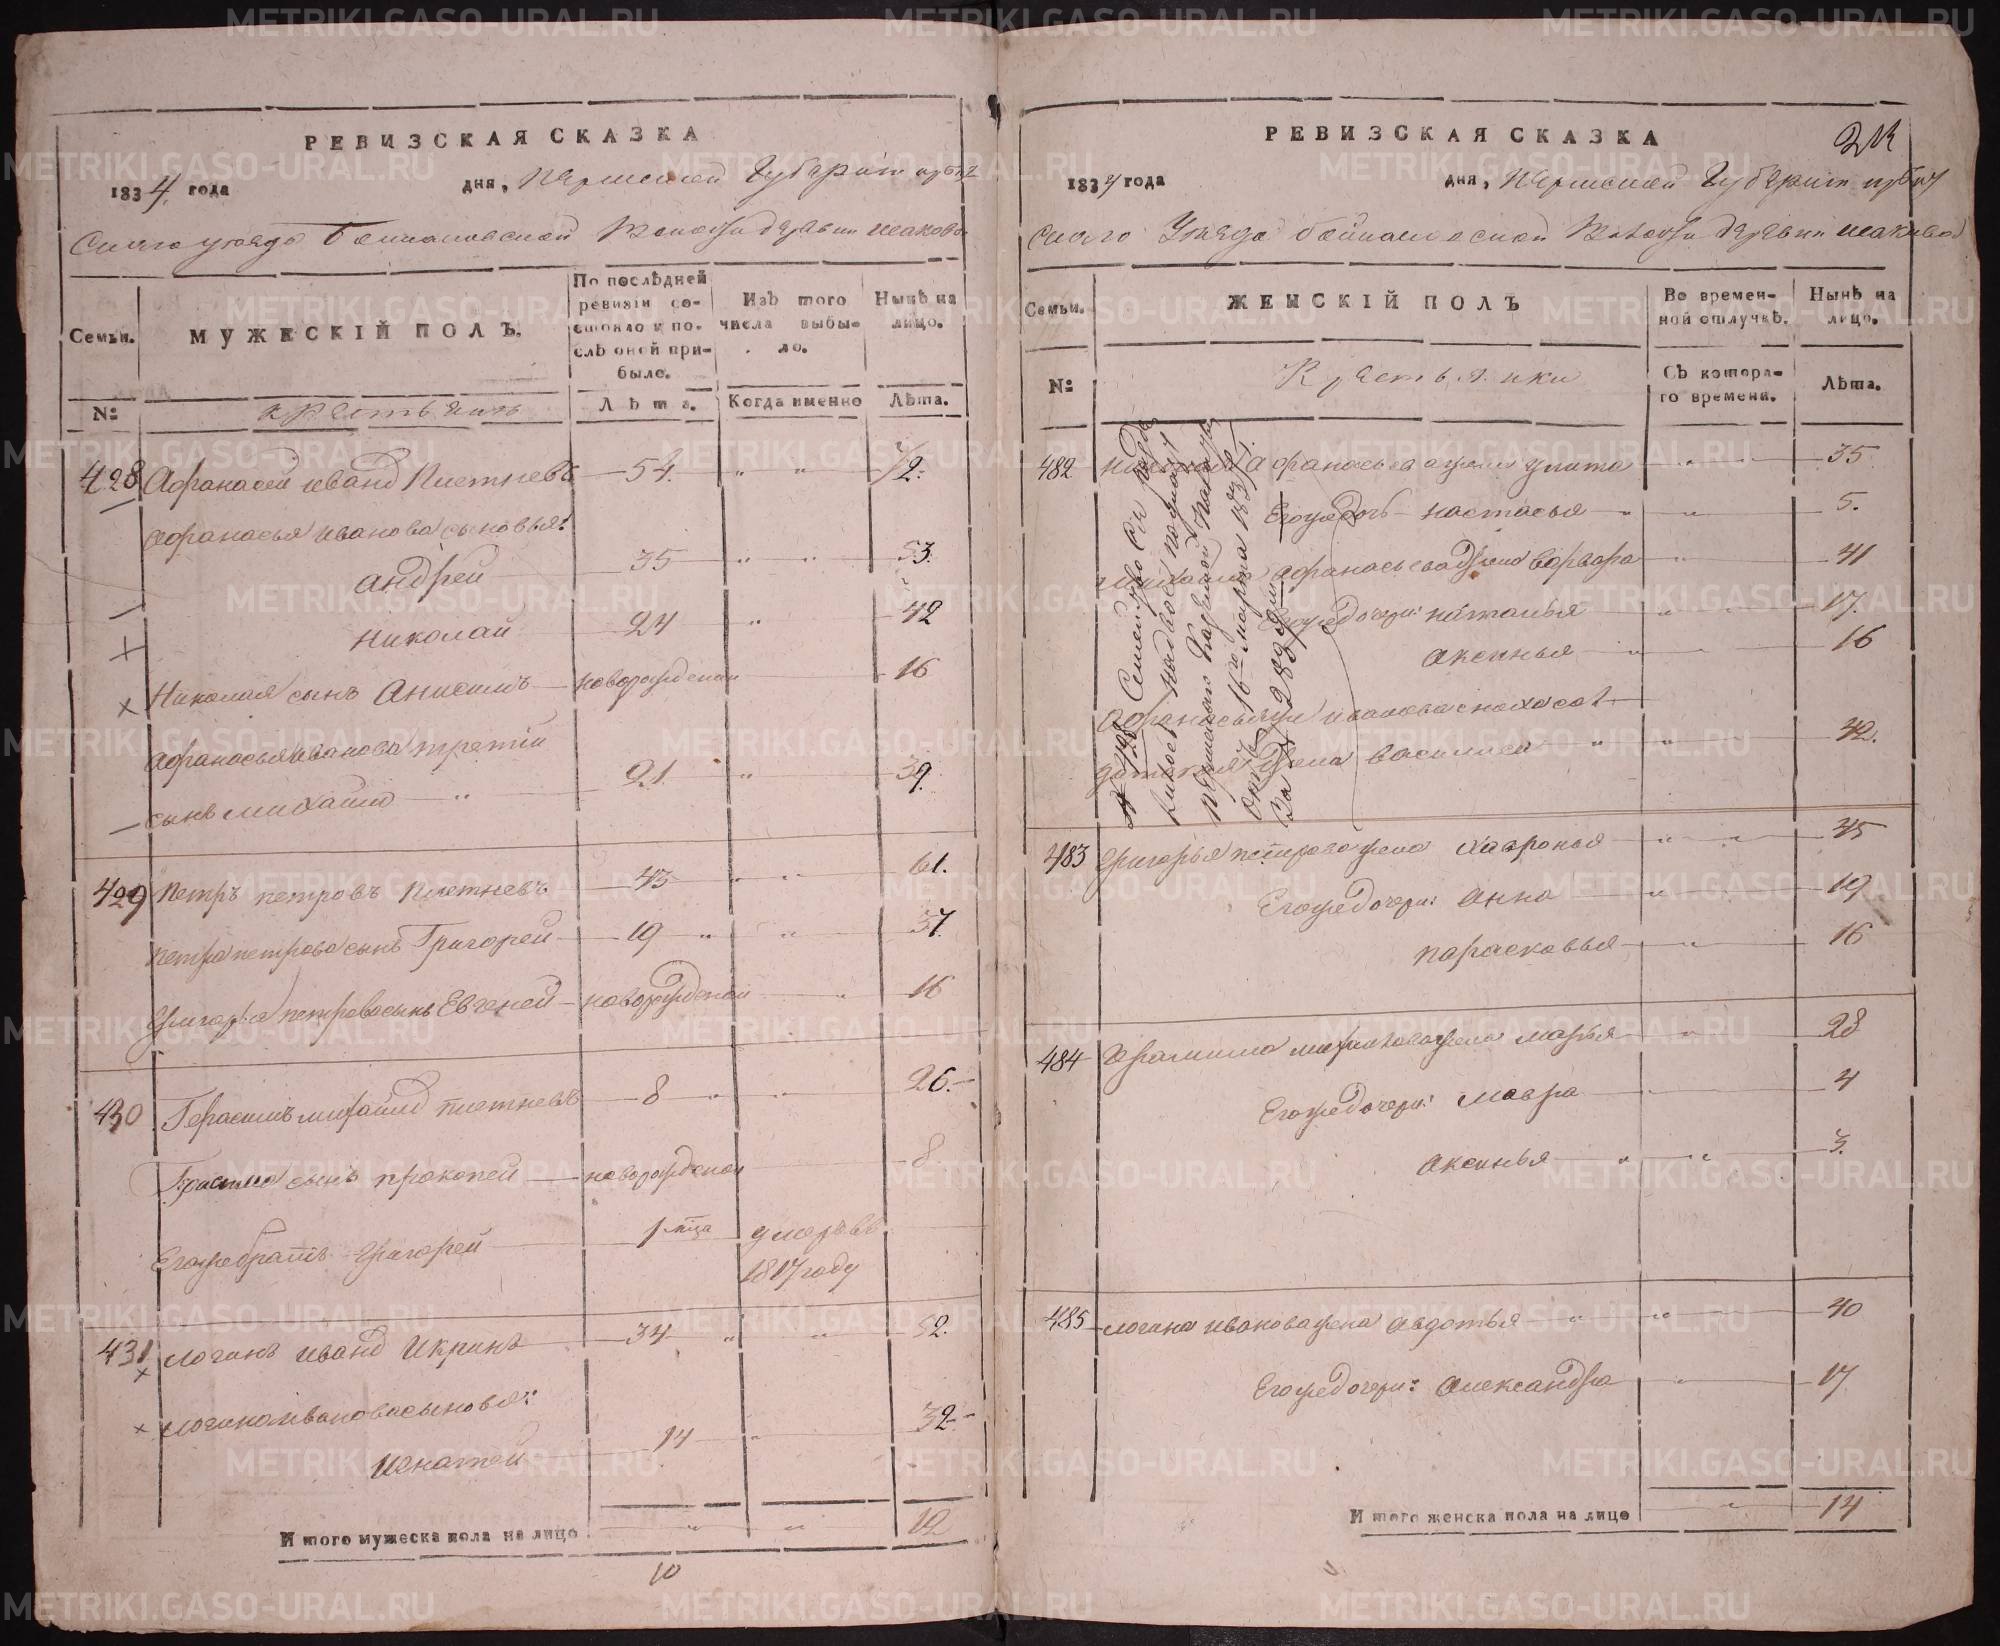 РЕВИЗСКАЯ СКАЗКА
1834 года дня, Пермской Губернии Ирбит
скаго уезда Волости деревни Шаковой
Семьи.
МУЖЕСКІЙ ПОЛЪ.
По послѣдней
ревизіи со-
стояло и по-
слѣ оной при-
было.
Изъ того
числа выбы-
ло.
Нынѣ на
лицо.
№
крестьянъ
Лѣта.
Когда именно
Лѣта.
428 Афанасей Иванов Плетневъ 54. " " 72.
Афанасья Иванова сыновья:
Андрей 35 " " 53.
Николай 24 " 42
Николая сынъ Анисимъ новорожденой 16
Афанасья Иванова третій
сынъ Михайло " 21. " 39.
429 Петръ Петровъ Плетневъ 43 " " 61.
Петра Петрова сынъ Григорей 19 " " 37.
Григорья Петрова сынъ Евгеней новорожденой " 16
430 Герасимъ Михайлов Плетневъ 8 " " 26.
Герасима сынъ Прокопей новорожденой 8.
Его же братъ Григорей 1 мца умеръ въ
1817 году
431 Логинъ Иванов Икринъ 34 " " 52.
Логина Иванова сыновья:
Игнатей 14 " 32.
И того мужеска пола на лицо " " 12
10
РЕВИЗСКАЯ СКАЗКА
1834 года дня, Пермской Губернии Ирбит
скаго Уезда Волости деревни Шаковой
Семьи.
ЖЕНСКІЙ ПОЛЪ
Во времен-
ной отлучкѣ.
Нынѣ на
лицо.
№
Крестьянки
Съ котора-
го времени.
Лѣта.
482 Николая Афанасьева жена Улита " 35
Его же дочь Настасья " " 5.
Михайла Афанасьева жена Варвара " 41
Его же дочери: Наталья " 17.
Аксинья " 16
Афанасья Иванова сноха сол-
датская жена Василиса " " 42.
Семейство сие
16го марта 183
За № 283
483 Григорья Петрова жена Хавронья " " 35
Его же дочери: Анна " 19
Парасковья " 16
484 Герасима Михайлова жена Марья " 28
Его же дочери: Мавра " 4
Аксинья " " 3.
485 Логина Иванова жена Авдотья " " 40
Его же дочери: Александра " 17
И того женска пола на лицо " 14
METRIKI.GASO-URAL.RU